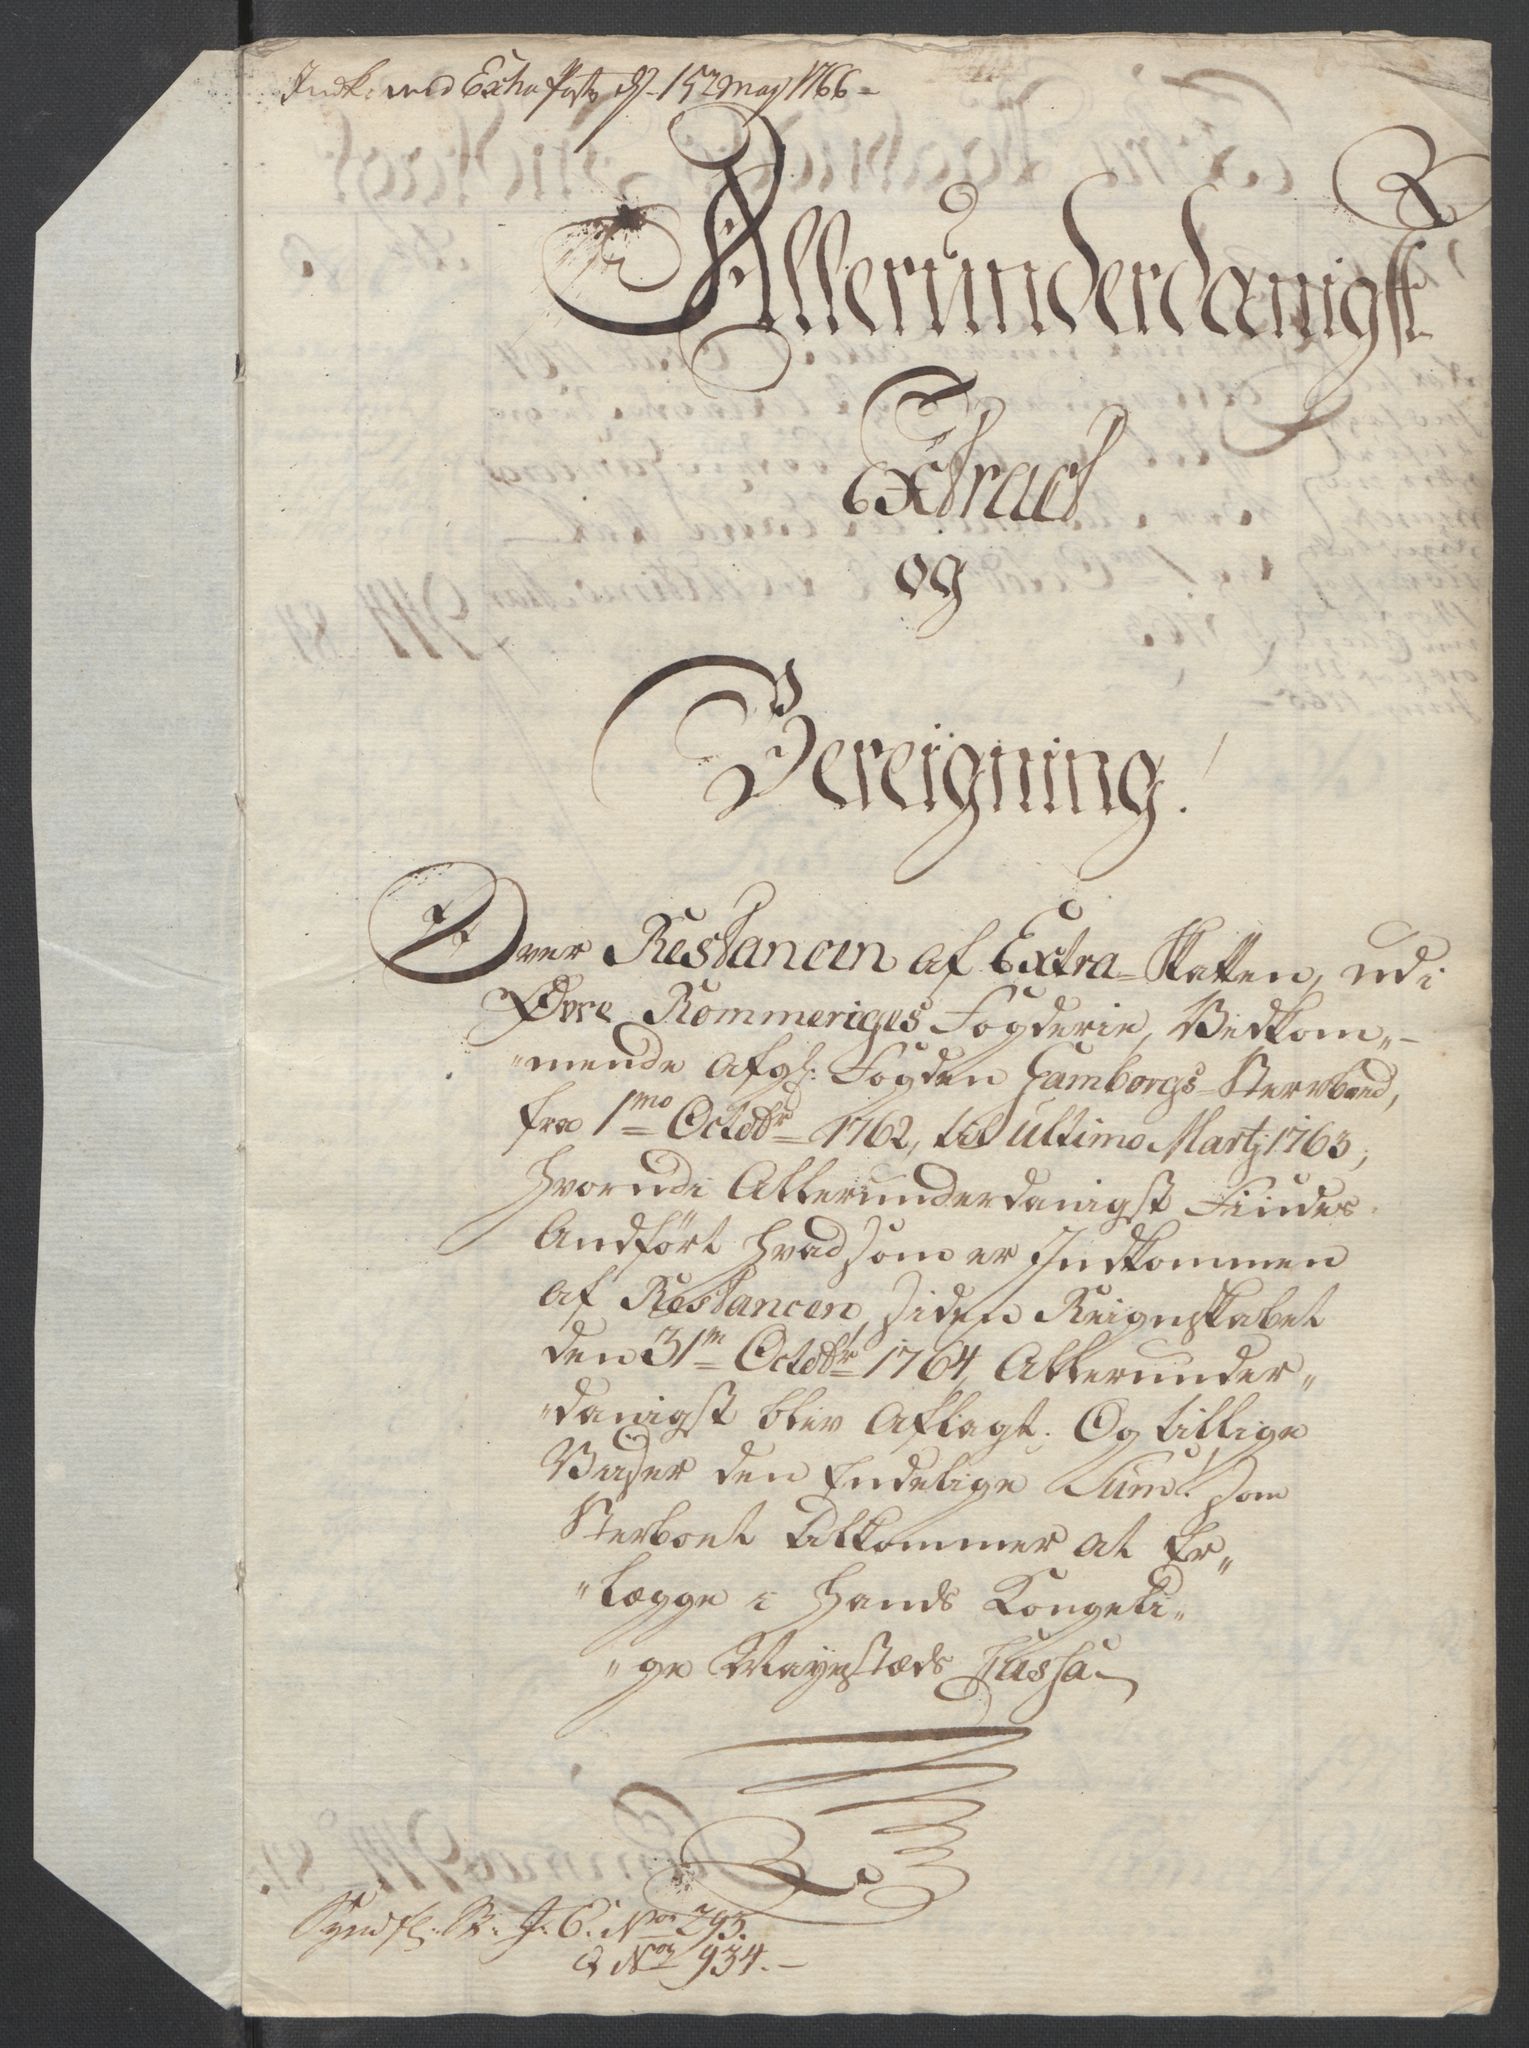 Indk: med Extra Post d. 15 May 1766 -
Allerunderdanigst
Extract
og
Bereigning.
Over Restancen af Extra-Skatten, udi
Øvre Rommeriges Fogderie, Vedkom-
mende afg: Fogden Gamborgs Stervboed,
fra 1mo Octobr 1762, til Ultimo Martj 1763,
hvorudi Allerunderdanigst Findes
Andført hvad som er Indkommen
af Restancen, siden Reignskabet
den 31m Octobr 1764, Allerunder-
danigst blev Aflagt. Og tillige
Viiser den Endelige Sum: som
Sterboet tilkommer at Er-
lægge i Hands Kongeli-
ge Mayestæds Cassa
St. J. C. No 295.
No 934. -